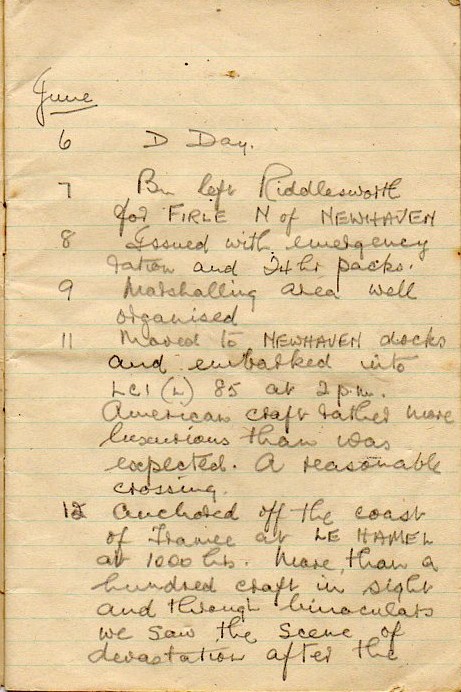 June
6 D Day.
7 Bn left Riddlesworth
for FIRLE N of NEWHAVEN
8 Issued with emergency
ration and 24 hr packs.
9 Marshalling area well
organised
11 Moved to NEWHAVEN docks
and embarked into
LCI (L) 85 at 2 p.m.
American craft rather more
luxurious than was
expected. A reasonable
crossing.
12 Anchored off the coast
of France at LE HAMEL
at 1000 hrs. More than a
hundred craft in sight
and through binoculars
we saw the scene of
devastation after the